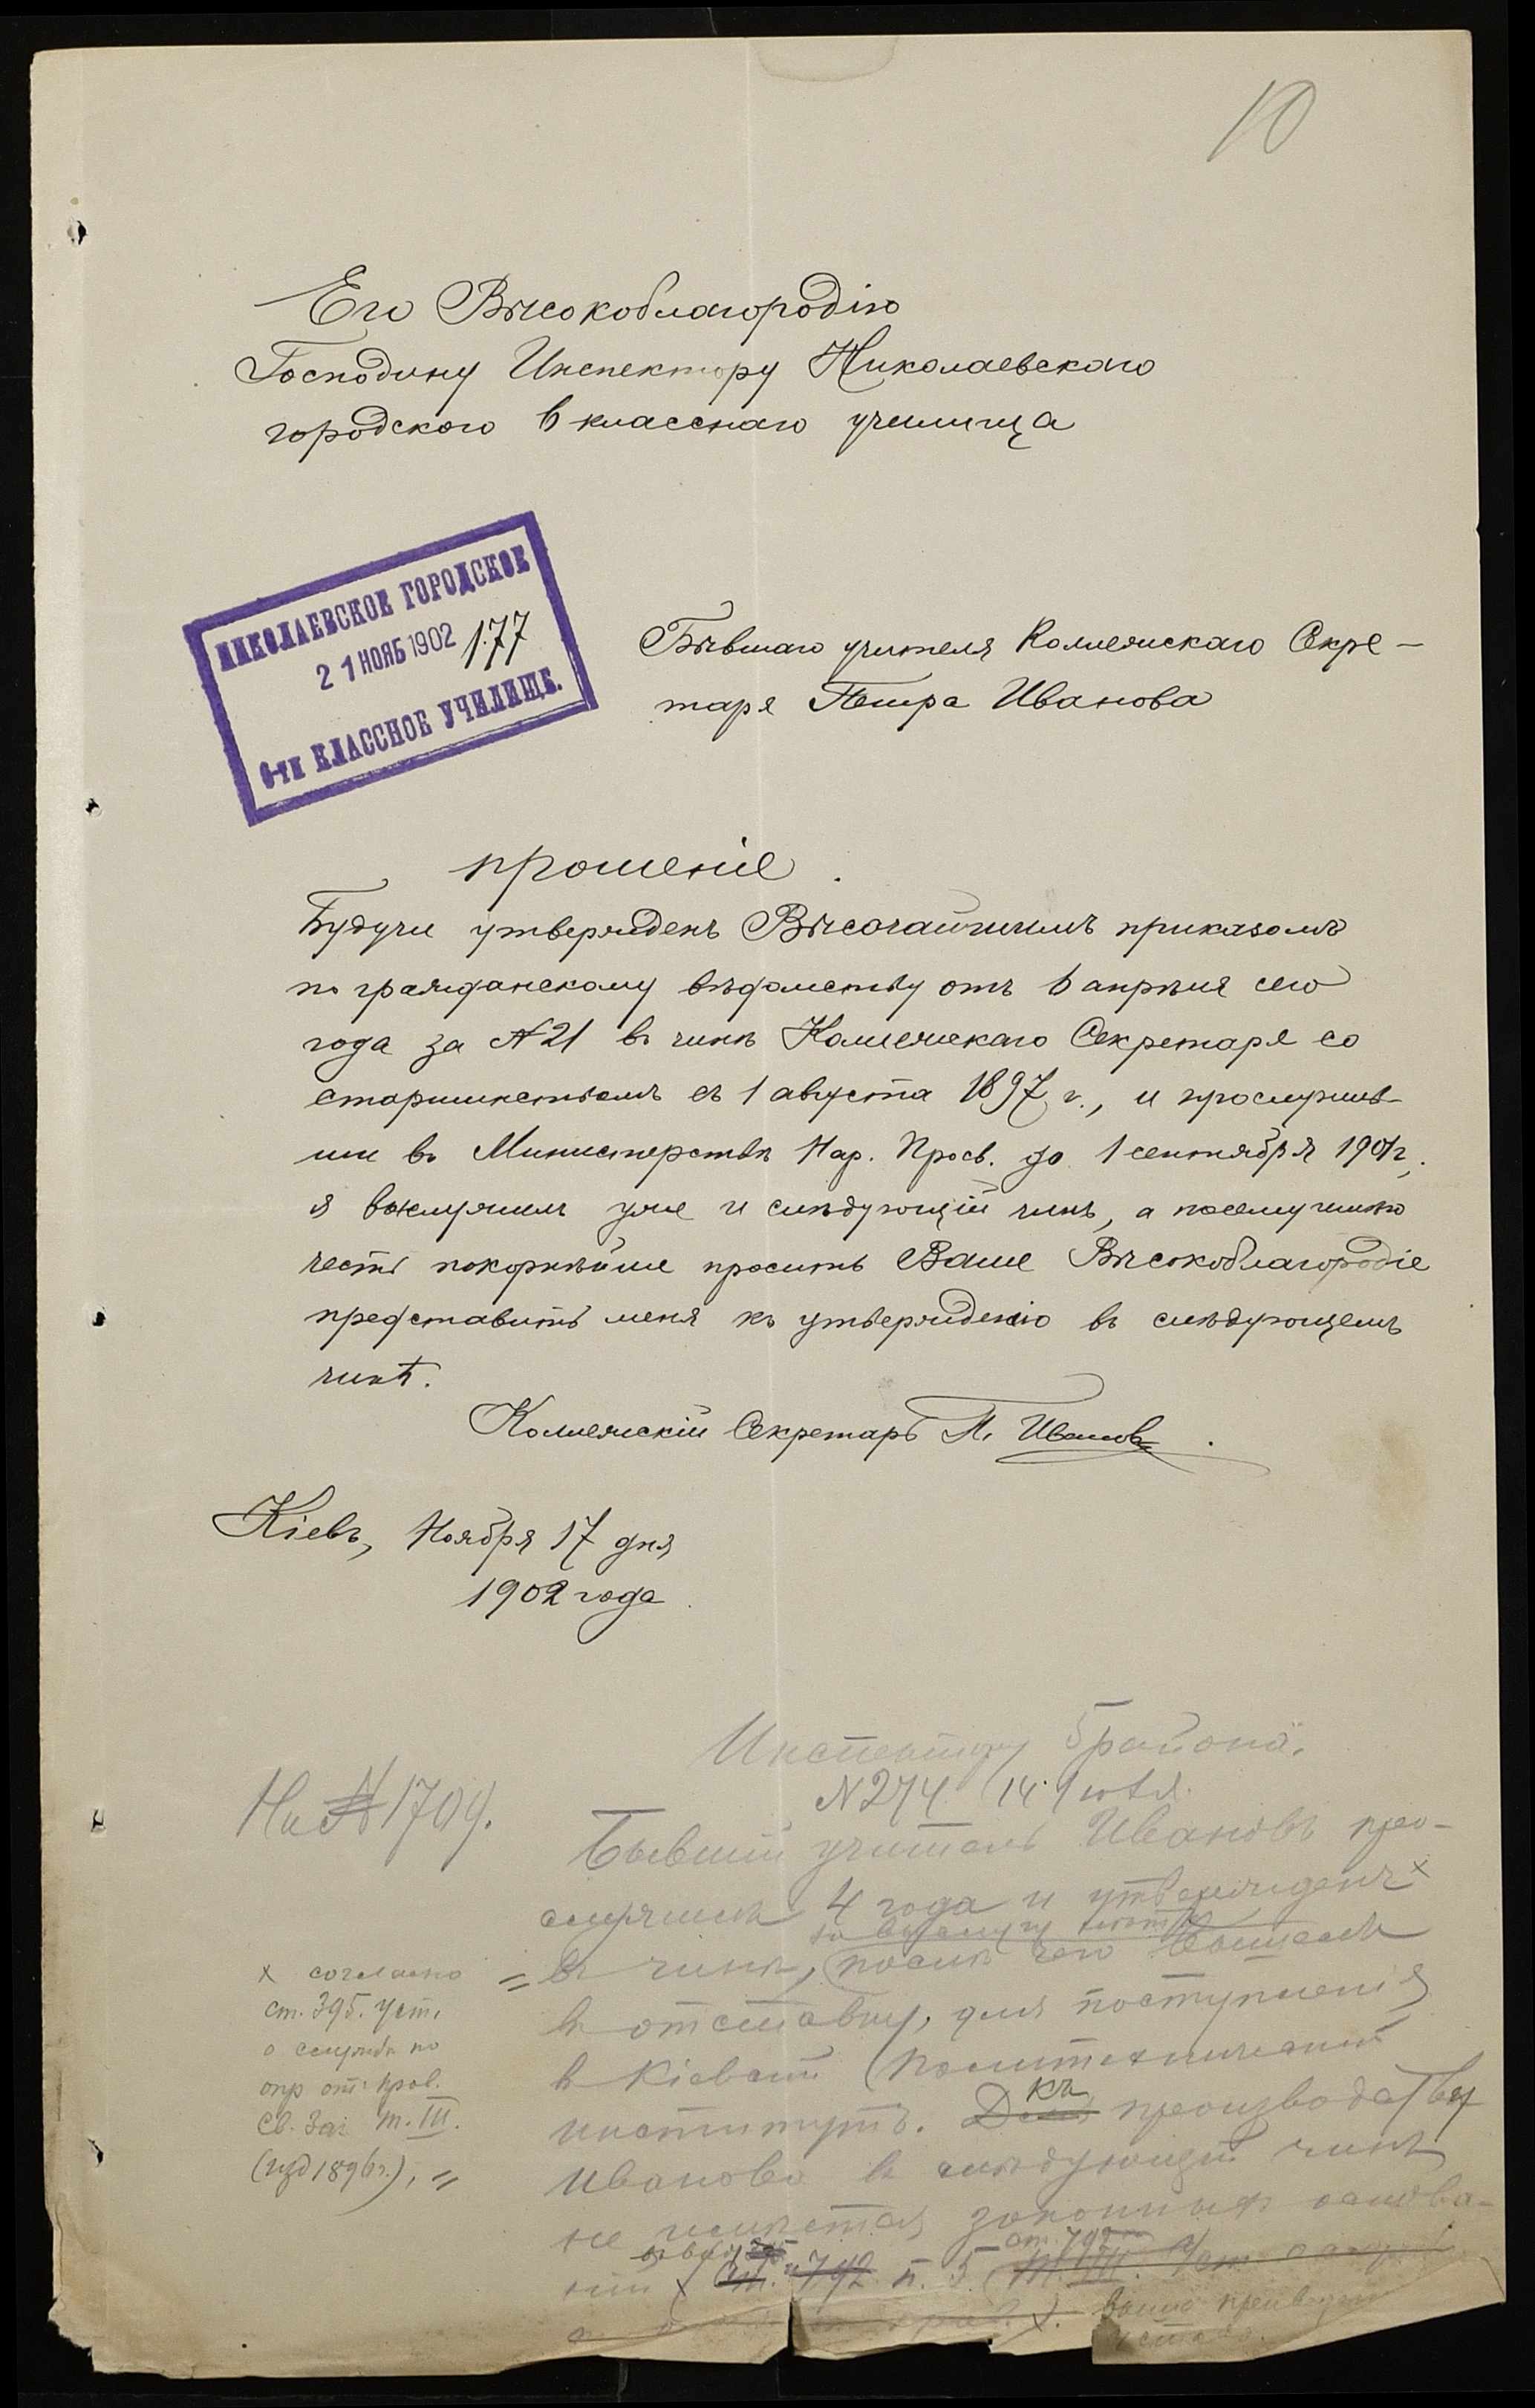 10
Его Высокоблагородію
Господину Инспектору Николаевскаго
городского 6 класснаго училища
НИКОЛАЕВСКОЕ ГОРОДСКОЕ
21 НОЯБ 1902 177
6-ти КЛАССНОЕ УЧИЛИЩЕ.
Бывшаго учителя Коллежскаго Секре-
таря Петра Иванова
прошеніе.
Будучи утвержденъ Высочайшимъ приказомъ
по гражданскому вѣдомству отъ 6 апрѣля сего
года за №21 въ чинѣ Коллежскаго Секретаря со
старшинствомъ съ 1 августа 1897 г., и прослужив-
ши въ Министерствѣ Нар. Просв. до 1 сентября 1901 г,
я выслужилъ уже и слѣдующій чинъ, а посему имѣю
честь покорнѣйше просить Ваше Высокоблагородіе
представить меня къ утвержденію въ слѣдующемъ
чинѣ.
Коллежскій Секретарь П. Ивановъ.
Кіевъ, Ноября 17 дня
1902 года
Инспектору 5 района.
N 274 14
На № 1709.
Бывшій учитель Ивановъ про-
служилъ 4 года и утвержденъ x
за выслугу лѣтъ
= въ чинѣ, послѣ чего вышелъ
въ отставку, для поступленія
въ Кіевскій Политехническій
институтъ. Къ производству
Иванова въ слѣдующій чинъ
не имѣется законныхъ основа-
ст. 792
ній ( п. 5
x согласно
ст. 395. Уст.
о службѣ по
опр отъ прав.
Св. Зак. т. III.
(изд 1896 г.), =